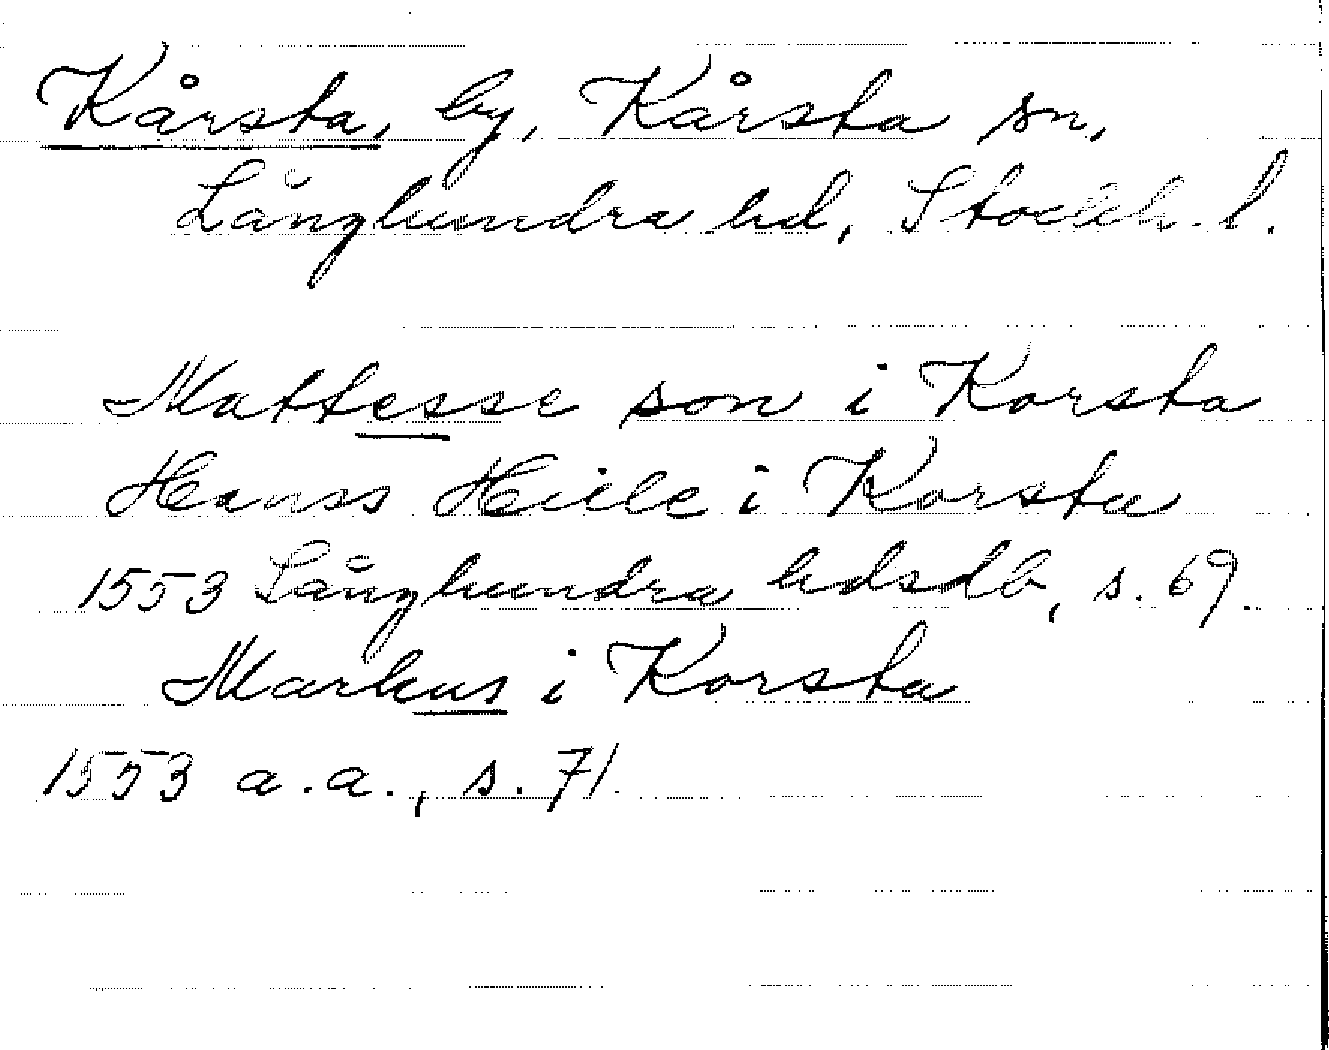 Kårsta, by, Kårsta sn,
Långhundra hd, Stockh. l.
Mattesse son i Korsta
Hanss Heile i Korsta
1553 Långhundra hdsdb, s. 69.
Markus i Korsta
1553 a.a., s. 71.